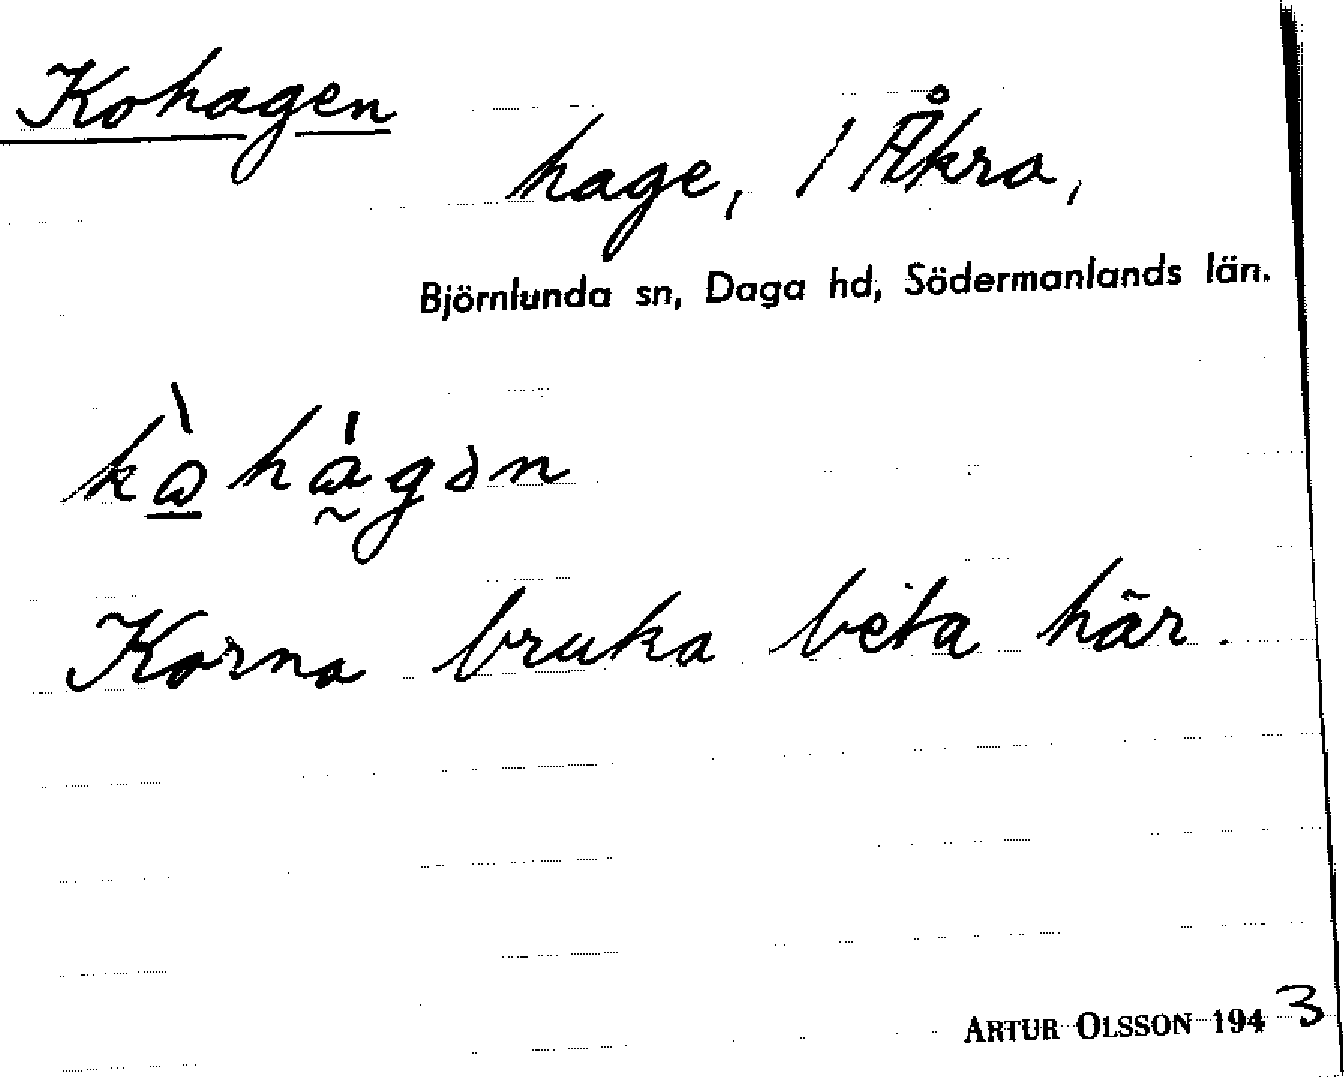 Kohagen
hage, 1 Åkra,
Björnlunda sn, Daga hd, Södermanlands län.
Korna bruka beta här.
ARTUR OLSSON 1943